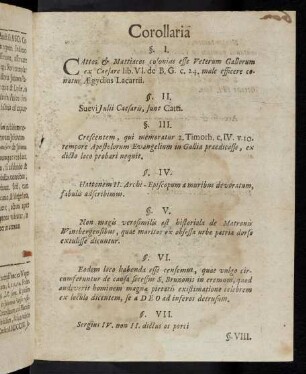 Corollaria
§. I.
Cattos & Mattiacos colonias esse Veterum Gallorum
ex Cæsare lib. VI. de B. G. c. 24, male efficere co-
natur Ægydius Lacarrii.
§. II.
Suevi Julii Cæsaris, sunt Catti.
§. III.
Crescentem, qui memoratur 2. Timoth. c. IV. v. 10.
tempore Apostolorum Evangelium in Gallia prædicasse, ex
dicto loco probari nequit.
§. IV.
Hattonem II. Archi-Episcopum a muribus devoratum,
fabulis adscribimus.
§. V.
Non magis verosimilis est historiola de Matronis
Winsbergensibus, quæ maritos ex obsessa urbe patria dorso
extulisse dicuntur.
§. VI.
Eodem loco habenda esse censemus, quæ vulgo cir-
cumferuntur de causa secessus S. Brunonis in eremum, quod
audiverit hominem magnæ pietatis existimatione celebrem
ex locula dicentem, se a DEO ad inferos detrusum.
§. VII.
Sergius IV. non II. dictus os porci
§. VIII.